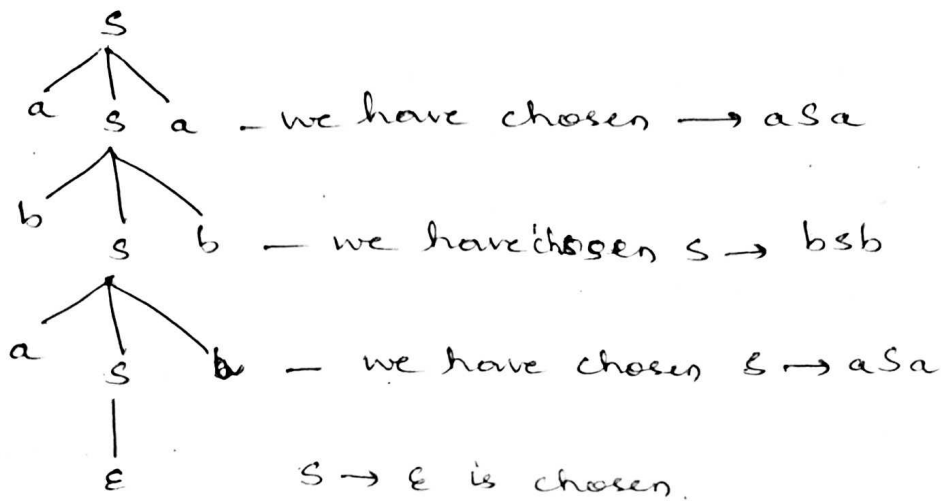 S
a S a - we have chosen → aSa
b S b - we have chosen S → bSb
a S a - we have chosen S → aSa
ε S → ε is chosen.